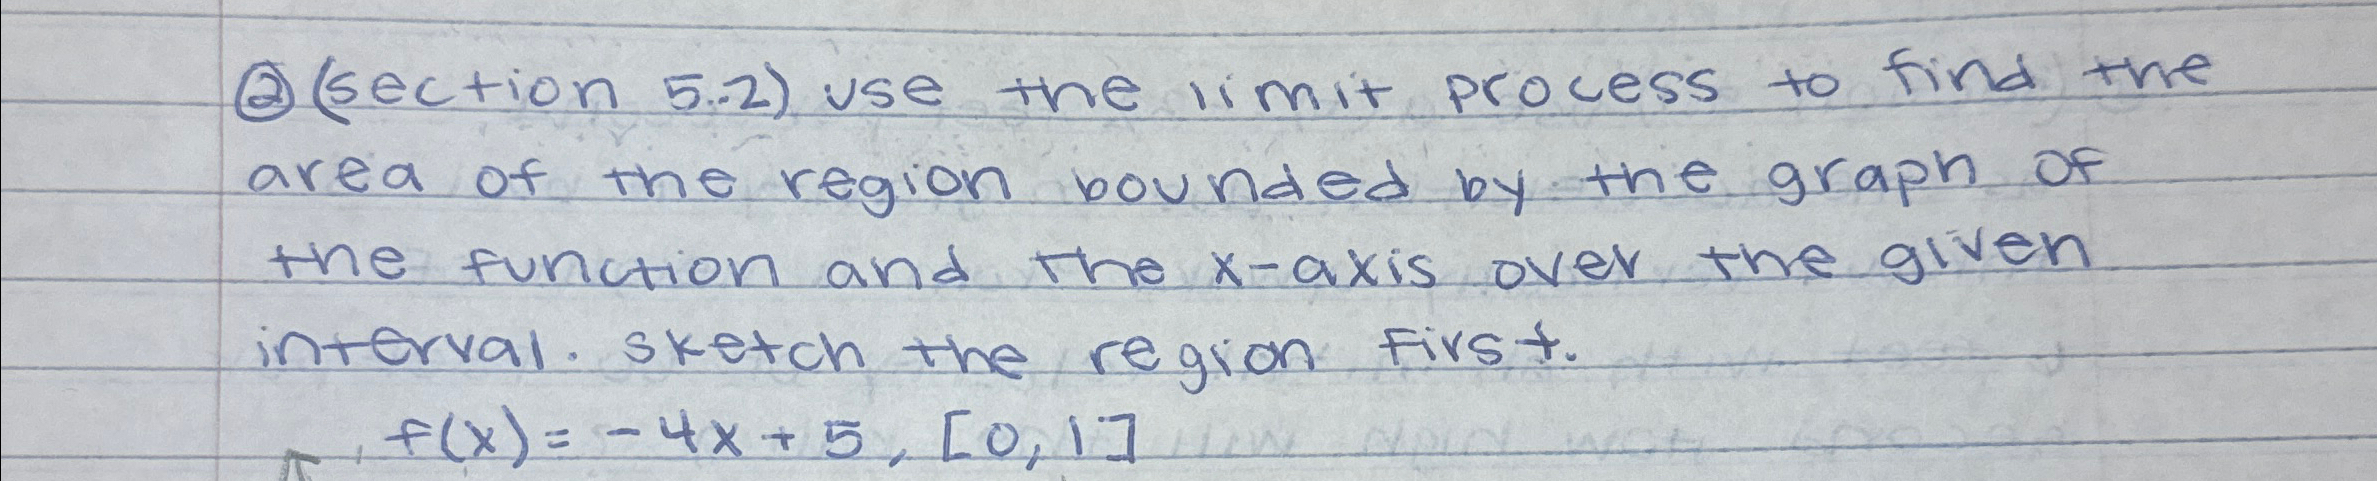 ② (section 5.2) use the limit process to find the
area of the region bounded by the graph of
the function and the x-axis over the given
interval. sketch the region first.
f(x) = -4x + 5, [0, 1]